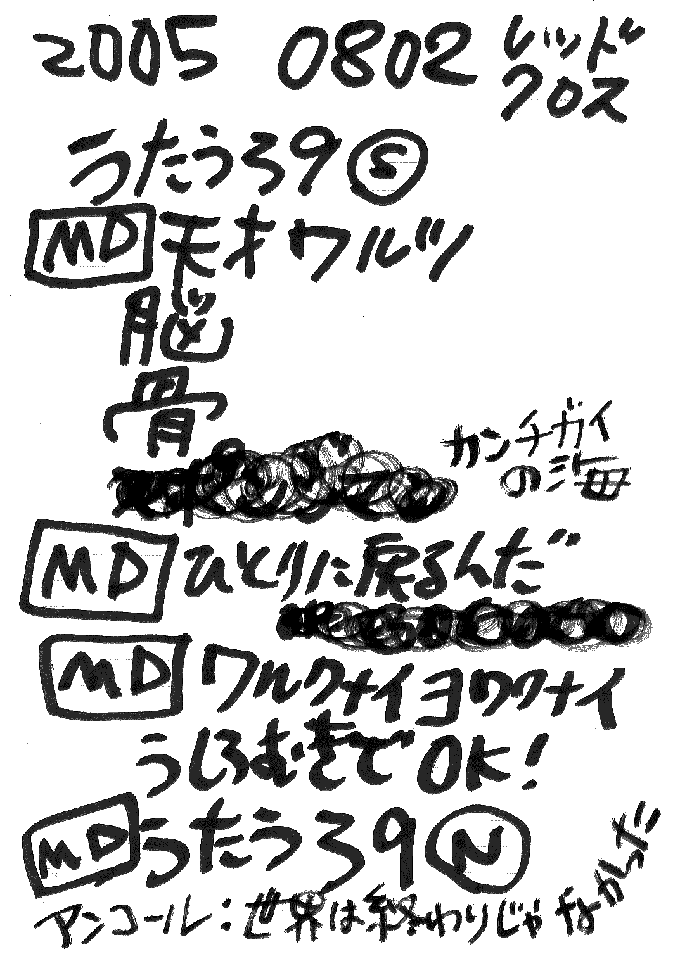 2005 0802 レッド
クロス
うたうろ39Ⓢ
MD 天才ワルツ
脳
骨
カンチガイ
の海
MD ひとりに戻るんだ
MD ワルクナイヨワクナイ
うしろむきでOK!
MD うたうろ39Ⓝ
アンコール:世界は終わりじゃなかった